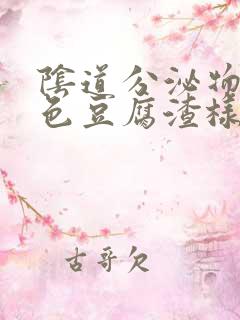 陰道分泌物
色豆腐渣樣
古哥欠